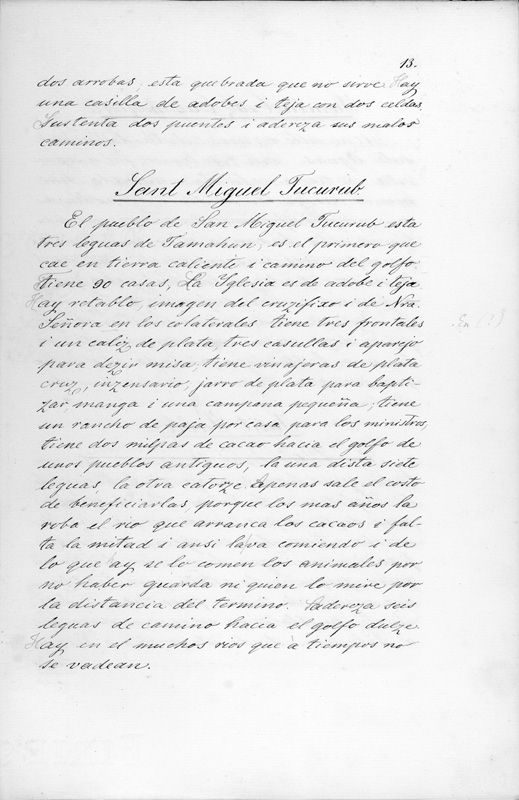 13.
dos arrobas, esta quebrada que no sirve Hay
una casilla de adobes i teja con dos celdas,
Sustenta dos puentes i adereza sus malos
caminos.
Sant Miguel Tucurub
El pueblo de San Miguel Tucurub esta
tres leguas de Tamahun, es el primero que
cae en tierra caliente i camino del golfo
Tiene 90 casas, La Iglesia es de adobe i teja
Hay retablo, imagen del cruzifixo i de Nra.
Señora en los colaterales tiene tres frontales
i un caliz de plata, tres casullas i aparejo
para dezir misa, tiene vinajeras de plata
cruz, inzensario, jarro de plata para bapti-
zar, manga i una campana pequeña; tiene
un rancho de paja por casa para los ministros,
tiene dos milpas de cacao hacia el golfo de
unos pueblos antiguos, la una dista siete
leguas, la otra catorze. Apenas sale el costo
de beneficiarlas porque los mas años la
roba el rio que arranca los cacaos i fal-
ta la mitad i ansi la va comiendo i de
lo que ay se lo comen los animales por
no haber guarda ni quien lo mire por
la distancia del termino. Sadereza seis
leguas de camino hacia el golfo dulze
Hay en el muchos rios que à tiempos no
se vadean.
En (?)